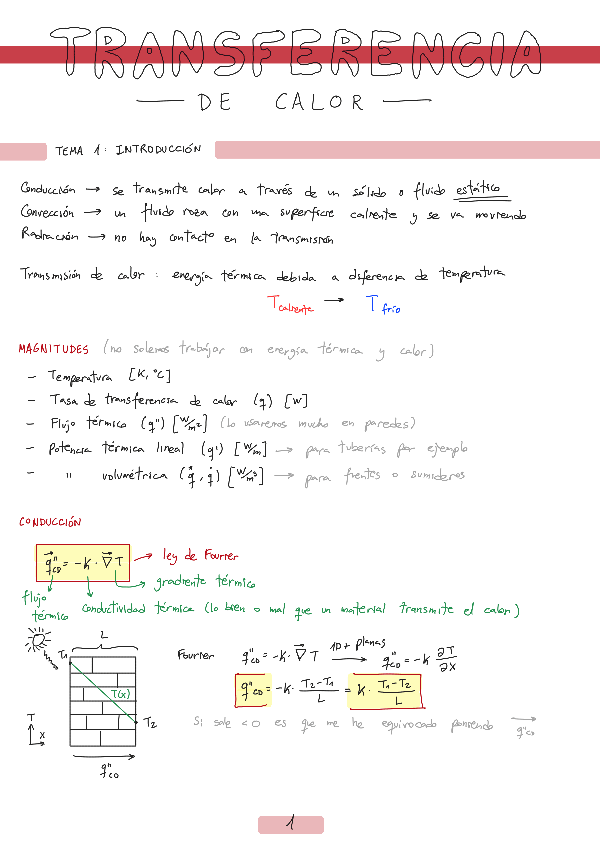 TRANSFERENCIA
— DE CALOR —
TEMA 1: INTRODUCCIÓN
Conducción → se transmite calor a través de un sólido o fluido estático
Convección → un fluido roza con una superficie caliente y se va moviendo
Radiación → no hay contacto en la transmisión
Transmisión de calor : energía térmica debida a diferencia de temperatura
T caliente → T frío
MAGNITUDES (no solemos trabajar con energía térmica y calor)
- Temperatura [K, °C]
- Tasa de transferencia de calor (q) [W]
- Flujo térmico (q") [W/m²] (lo usaremos mucho en paredes)
- Potencia térmica lineal (q') [W/m] → para tuberías por ejemplo
- " volumétrica (q̇, q̇) [W/m³] → para fuentes o sumideros
CONDUCCIÓN
q"CD = -k · ∇T → ley de Fourier
gradiente térmico
flujo térmico
conductividad térmica (lo bien o mal que un material transmite el calor)
L
T1
T(x)
T2
T
x
q"CD
Fourier q"CD = -k · ∇T 1D + planas → q"CD = -k ∂T/∂x
q"CD = -k · T2-T1/L = k · T1-T2/L
Si sale <0 es que me he equivocado poniendo q"CD
1